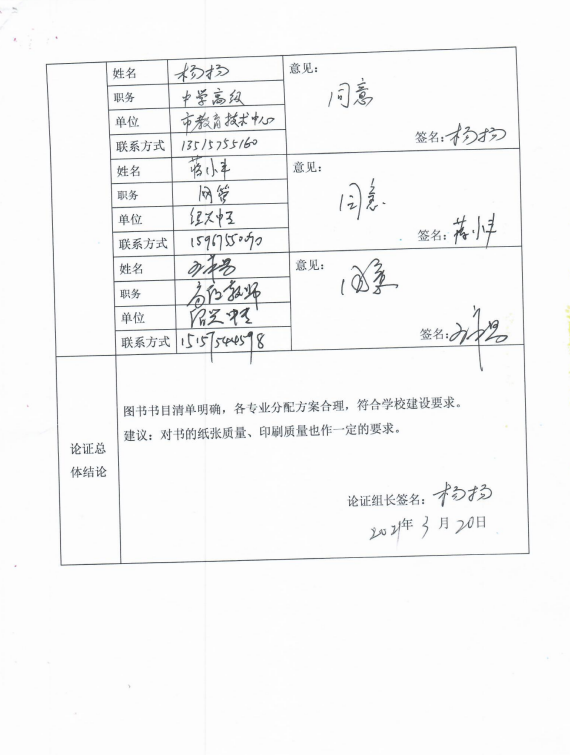 姓名 杨扬
意见：
同意
职务 中学高级
单位 市教育技术中心
签名：杨扬
联系方式 13515755160
姓名 蒋小丰
意见：
同意
职务 网管
单位
签名：蒋小丰
联系方式
姓名
意见：
同意
职务 高级教师
单位
签名：
联系方式 15157544598
论证总体结论
图书书目清单明确，各专业分配方案合理，符合学校建设要求。
建议：对书的纸张质量、印刷质量也作一定的要求。
论证组长签名：杨扬
2021年3月20日